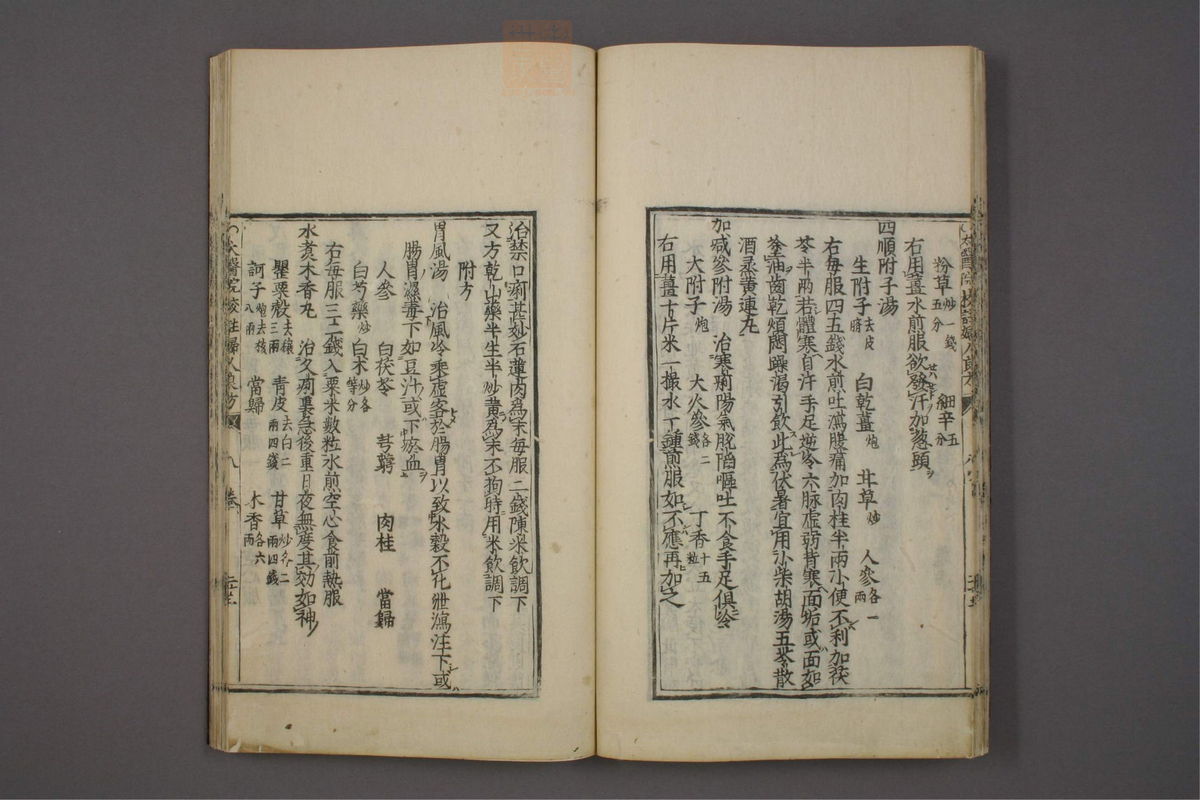 粉草炒一錢五分　細辛五分
右用薑水煎服欲發汗加葱頭
四順附子湯
生附子去皮臍　白乾薑炮　甘草炒　人參各一兩
右每服四五錢水煎吐瀉腹痛加肉桂半兩小便不利加茯
苓半兩若體寒自汗手足逆冷六脉虛弱背寒面垢或面如
塗油齒乾煩悶躁渴引飲此爲伏暑宜用小柴胡湯五苓散
酒蒸黃連丸
加減參附湯　治寒痢陽氣脫陷嘔吐不食手足俱冷
大附子炮　大人參各二錢　丁香十五粒
右用薑十片米一撮水一鍾煎服如不應再加之
治禁口痢甚妙石蓮肉爲末每服二錢陳米飲調下
又方乾山藥半生半炒黃爲末不拘時用米飲調下
附方
胃風湯　治風冷乘虛客於腸胃以致水穀不化泄瀉注下或
腸胃濕毒下如豆汁或下瘀血
人參　白茯苓　芎藭　肉桂　當歸
白芍藥炒　白术炒各等分
右每服三二錢入粟米數粒水煎空心食前熱服
水煮木香丸　治久痢裏急後重日夜無度其効如神
罌粟殼去穰三兩　青皮去白二兩四錢　甘草炒各二兩四錢
訶子炮去核八兩　當歸　木香各六兩
太醫院校註婦人良方　八卷